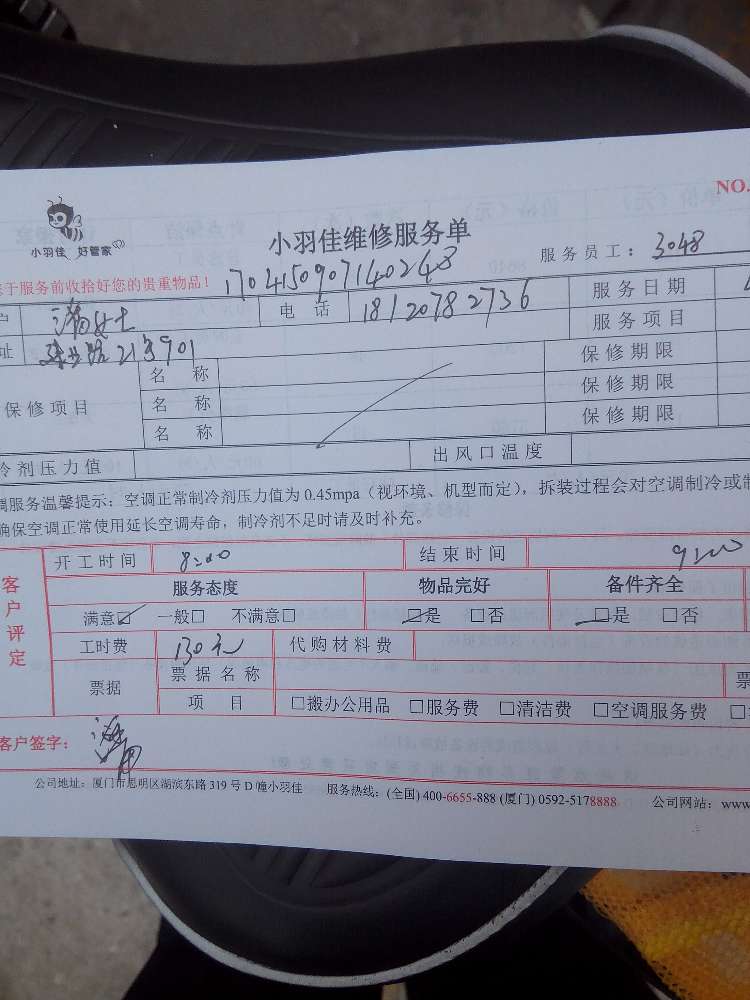 NO.
小羽佳 好管家
小羽佳维修服务单
服务员工：3048
于服务前收拾好您的贵重物品！
1704150907140248
户 女士 电 话 18120782736 服务日期
址 213901 服务项目
保修项目 名 称 保修期限
名 称 保修期限
名 称 保修期限
冷剂压力值 出风口温度
调服务温馨提示：空调正常制冷剂压力值为 0.45mpa（视环境、机型而定），拆装过程会对空调制冷或制
确保空调正常使用延长空调寿命，制冷剂不足时请及时补充。
客户评定
开工时间 8:00 结束时间 9:00
服务态度 物品完好 备件齐全
满意☑ 一般□ 不满意□ □是 □否 □是 □否
工时费 130元 代购材料费
票据 票据名称 票
项 目 □搬办公用品 □服务费 □清洁费 □空调服务费 □
客户签字：
公司地址：厦门市思明区湖滨东路 319 号 D 幢小羽佳 服务热线：(全国) 400-6655-888 (厦门) 0592-5178888 公司网站：www